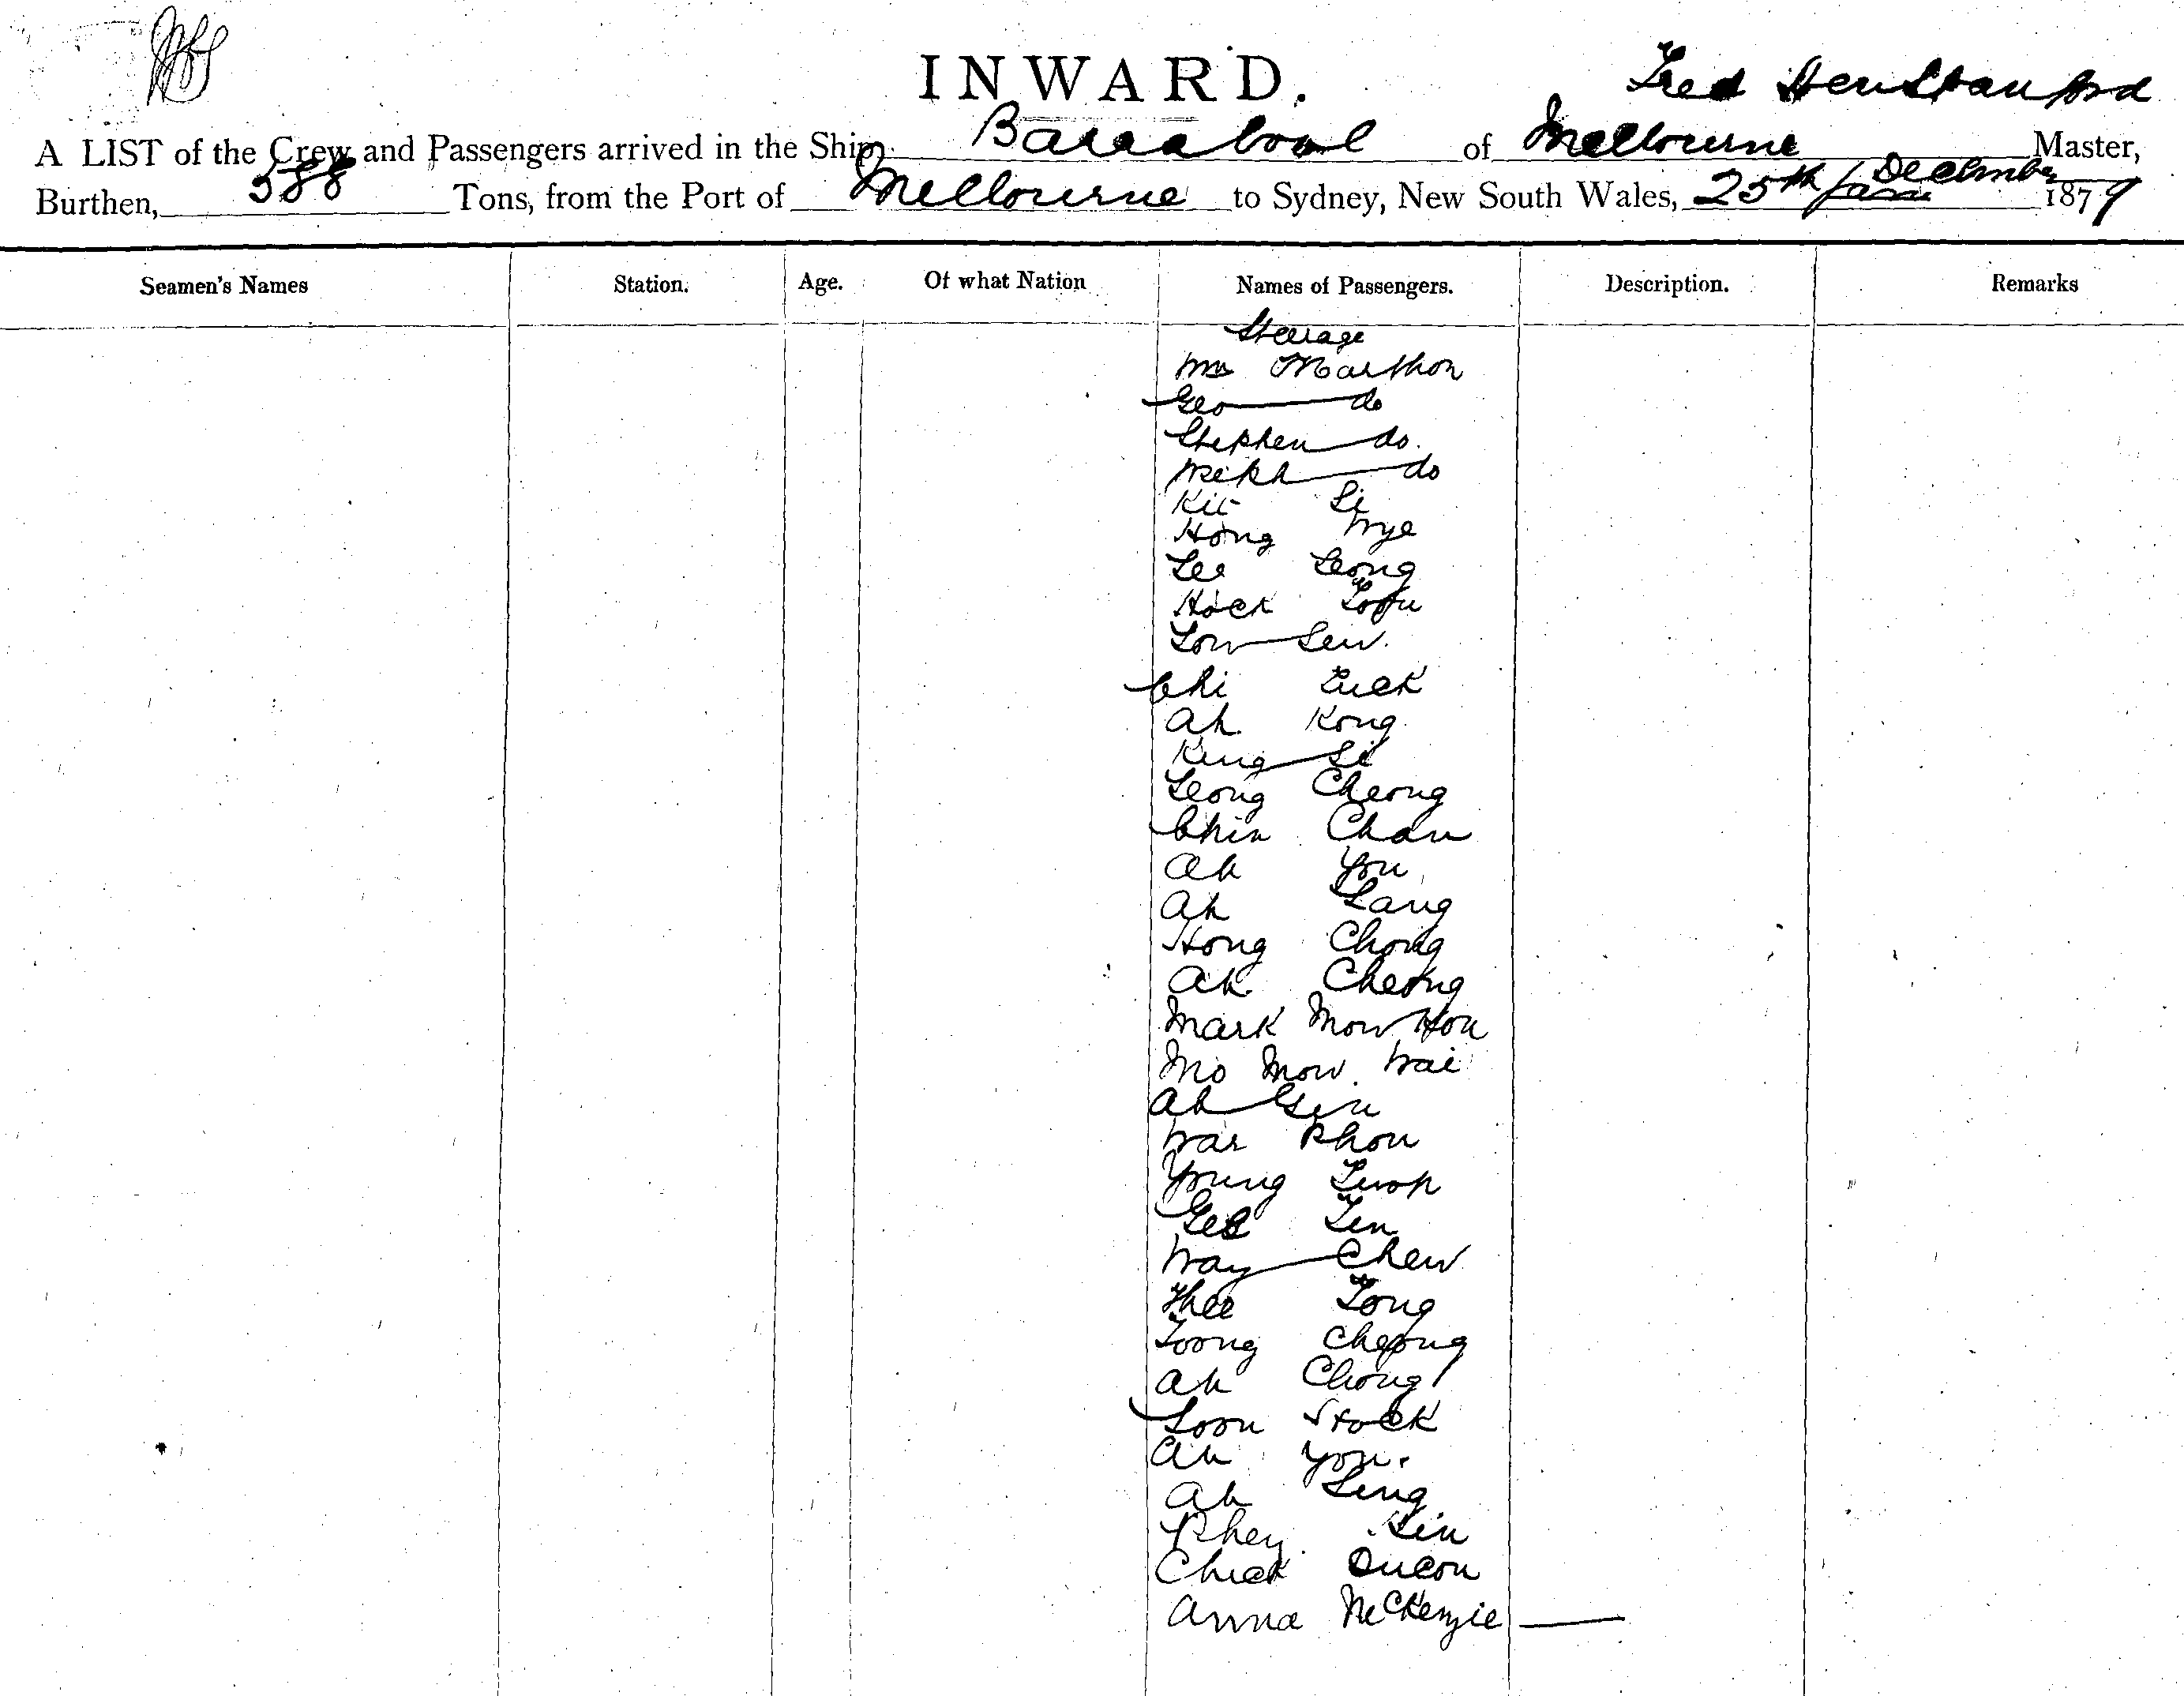 INWARD.
Fred Hen Stanford
A LIST of the Crew and Passengers arrived in the Ship Barrabool of Melbourne Master,
Burthen, 588 Tons, from the Port of Melbourne to Sydney, New South Wales, 25th December 1879
Seamen's Names Station. Age. Of what Nation Names of Passengers. Description. Remarks
Steerage
Mrs Marthon
Geo do
Stephen do.
do
Kit Li
Hong Wye
Lee Leong
Hock
Low Lew.
Chi Luck
Ah Kong
King Li
Leong Cheong
Chin Chau
Ah You
Ah Lang
Hong Chong
Ah Cheong
Mark Mow Hou
Mo Mow Wai
Ah Gin
War Khou
Young
Gee
Way Chew
Thee Tong
Toong Cheong
Ah Chong
Loon Stock
Ah You.
Ah Ling
Lin
Chick
Anna McKenzie